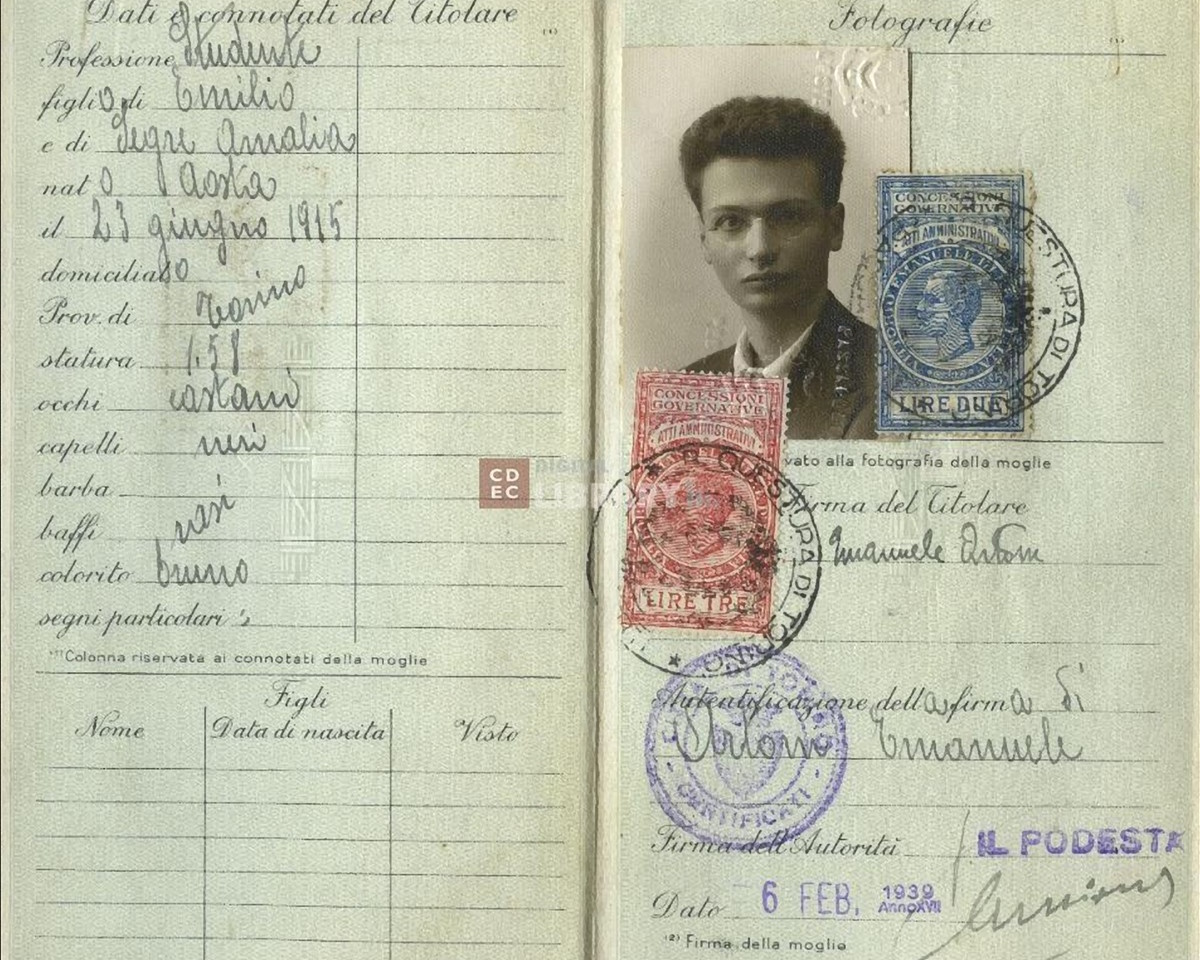 Dati e connotati del Titolare
(1)
Professione Studente
figlio di Emilio
e di Segre Amalia
nato Aosta
il 23 giugno 1915
domiciliato
Prov. di Torino
statura 1.58
occhi castani
capelli neri
barba
baffi rasi
colorito bruno
segni particolari
(1) Colonna riservata ai connotati della moglie
Figli
Nome Data di nascita Visto
Fotografie
(1)
CONCESSIONI
GOVERNATIVE
ATTI AMMINISTRATIVI
VITTORIO EMANUELE III
LIRE DUE
QUESTURA DI TORINO
CONCESSIONI
GOVERNATIVE
ATTI AMMINISTRATIVI
LIRE TRE
R. QUESTURA DI TORINO
CDEC DIGITAL LIBRARY
vato alla fotografia della moglie
Firma del Titolare
Emanuele Artom
Autentificazione della firma di
Artom Emanuele
DI TORINO
CERTIFICATI
Firma dell'Autorità IL PODESTÀ
Dato 6 FEB. 1939
Anno XVII
(2) Firma della moglie